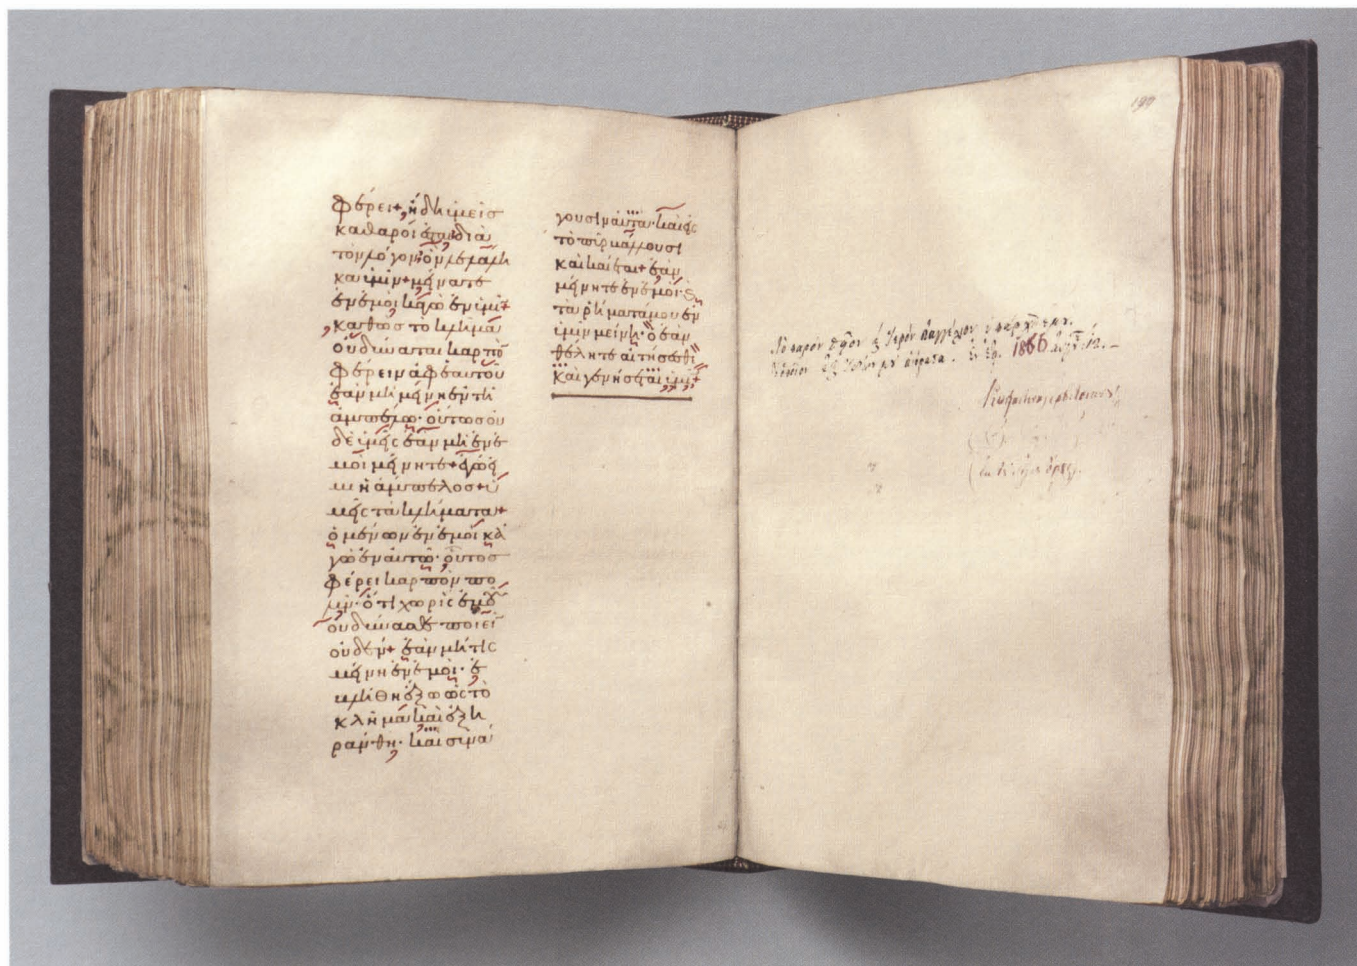 φέρει + ἤδη ὑμεῖς
καθαροί ἐστε διὰ
τὸν λόγον ὃν λελάλη
κα ὑμῖν + μείνατε
ἐν ἐμοὶ κἀγὼ ἐν ὑμῖν +
καθὼς τὸ κλῆμα
οὐ δύναται καρπὸν
φέρειν ἀφ' ἑαυτοῦ
ἐὰν μὴ μένη ἐν τῆ
ἀμπέλω · οὕτως οὐ
δὲ ὑμεῖς ἐὰν μὴ ἐν ἐ
μοὶ μένητε + ἐγώ εἰ
μι ἡ ἄμπελος + ὑ
μεῖς τὰ κλήματα +
ὁ μένων ἐν ἐμοὶ κἀ
γὼ ἐν αὐτῶ · οὗτος
φέρει καρπὸν πο
λύν · ὅτι χωρὶς ἐμοῦ
οὐ δύνασθε ποιεῖ
οὐδέν + ἐὰν μή τις
μένη ἐν ἐμοὶ · ἐ
βλήθη ἔξω ὡς τὸ
κλῆμα καὶ ἐξη
ράνθη · καὶ συνά
γουσιν αὐτὰ · καὶ εἰς
τὸ πῦρ βάλλουσι
καὶ καίεται + ἐὰν
μείνητε ἐν ἐμοὶ ·
τὰ ῥήματά μου ἐν
ὑμῖν μείνη · ὃ ἐὰν
θέλητε αἰτήσεσθε
καὶ γενήσεται ὑμῖν +
199
ἱερὸν
1866